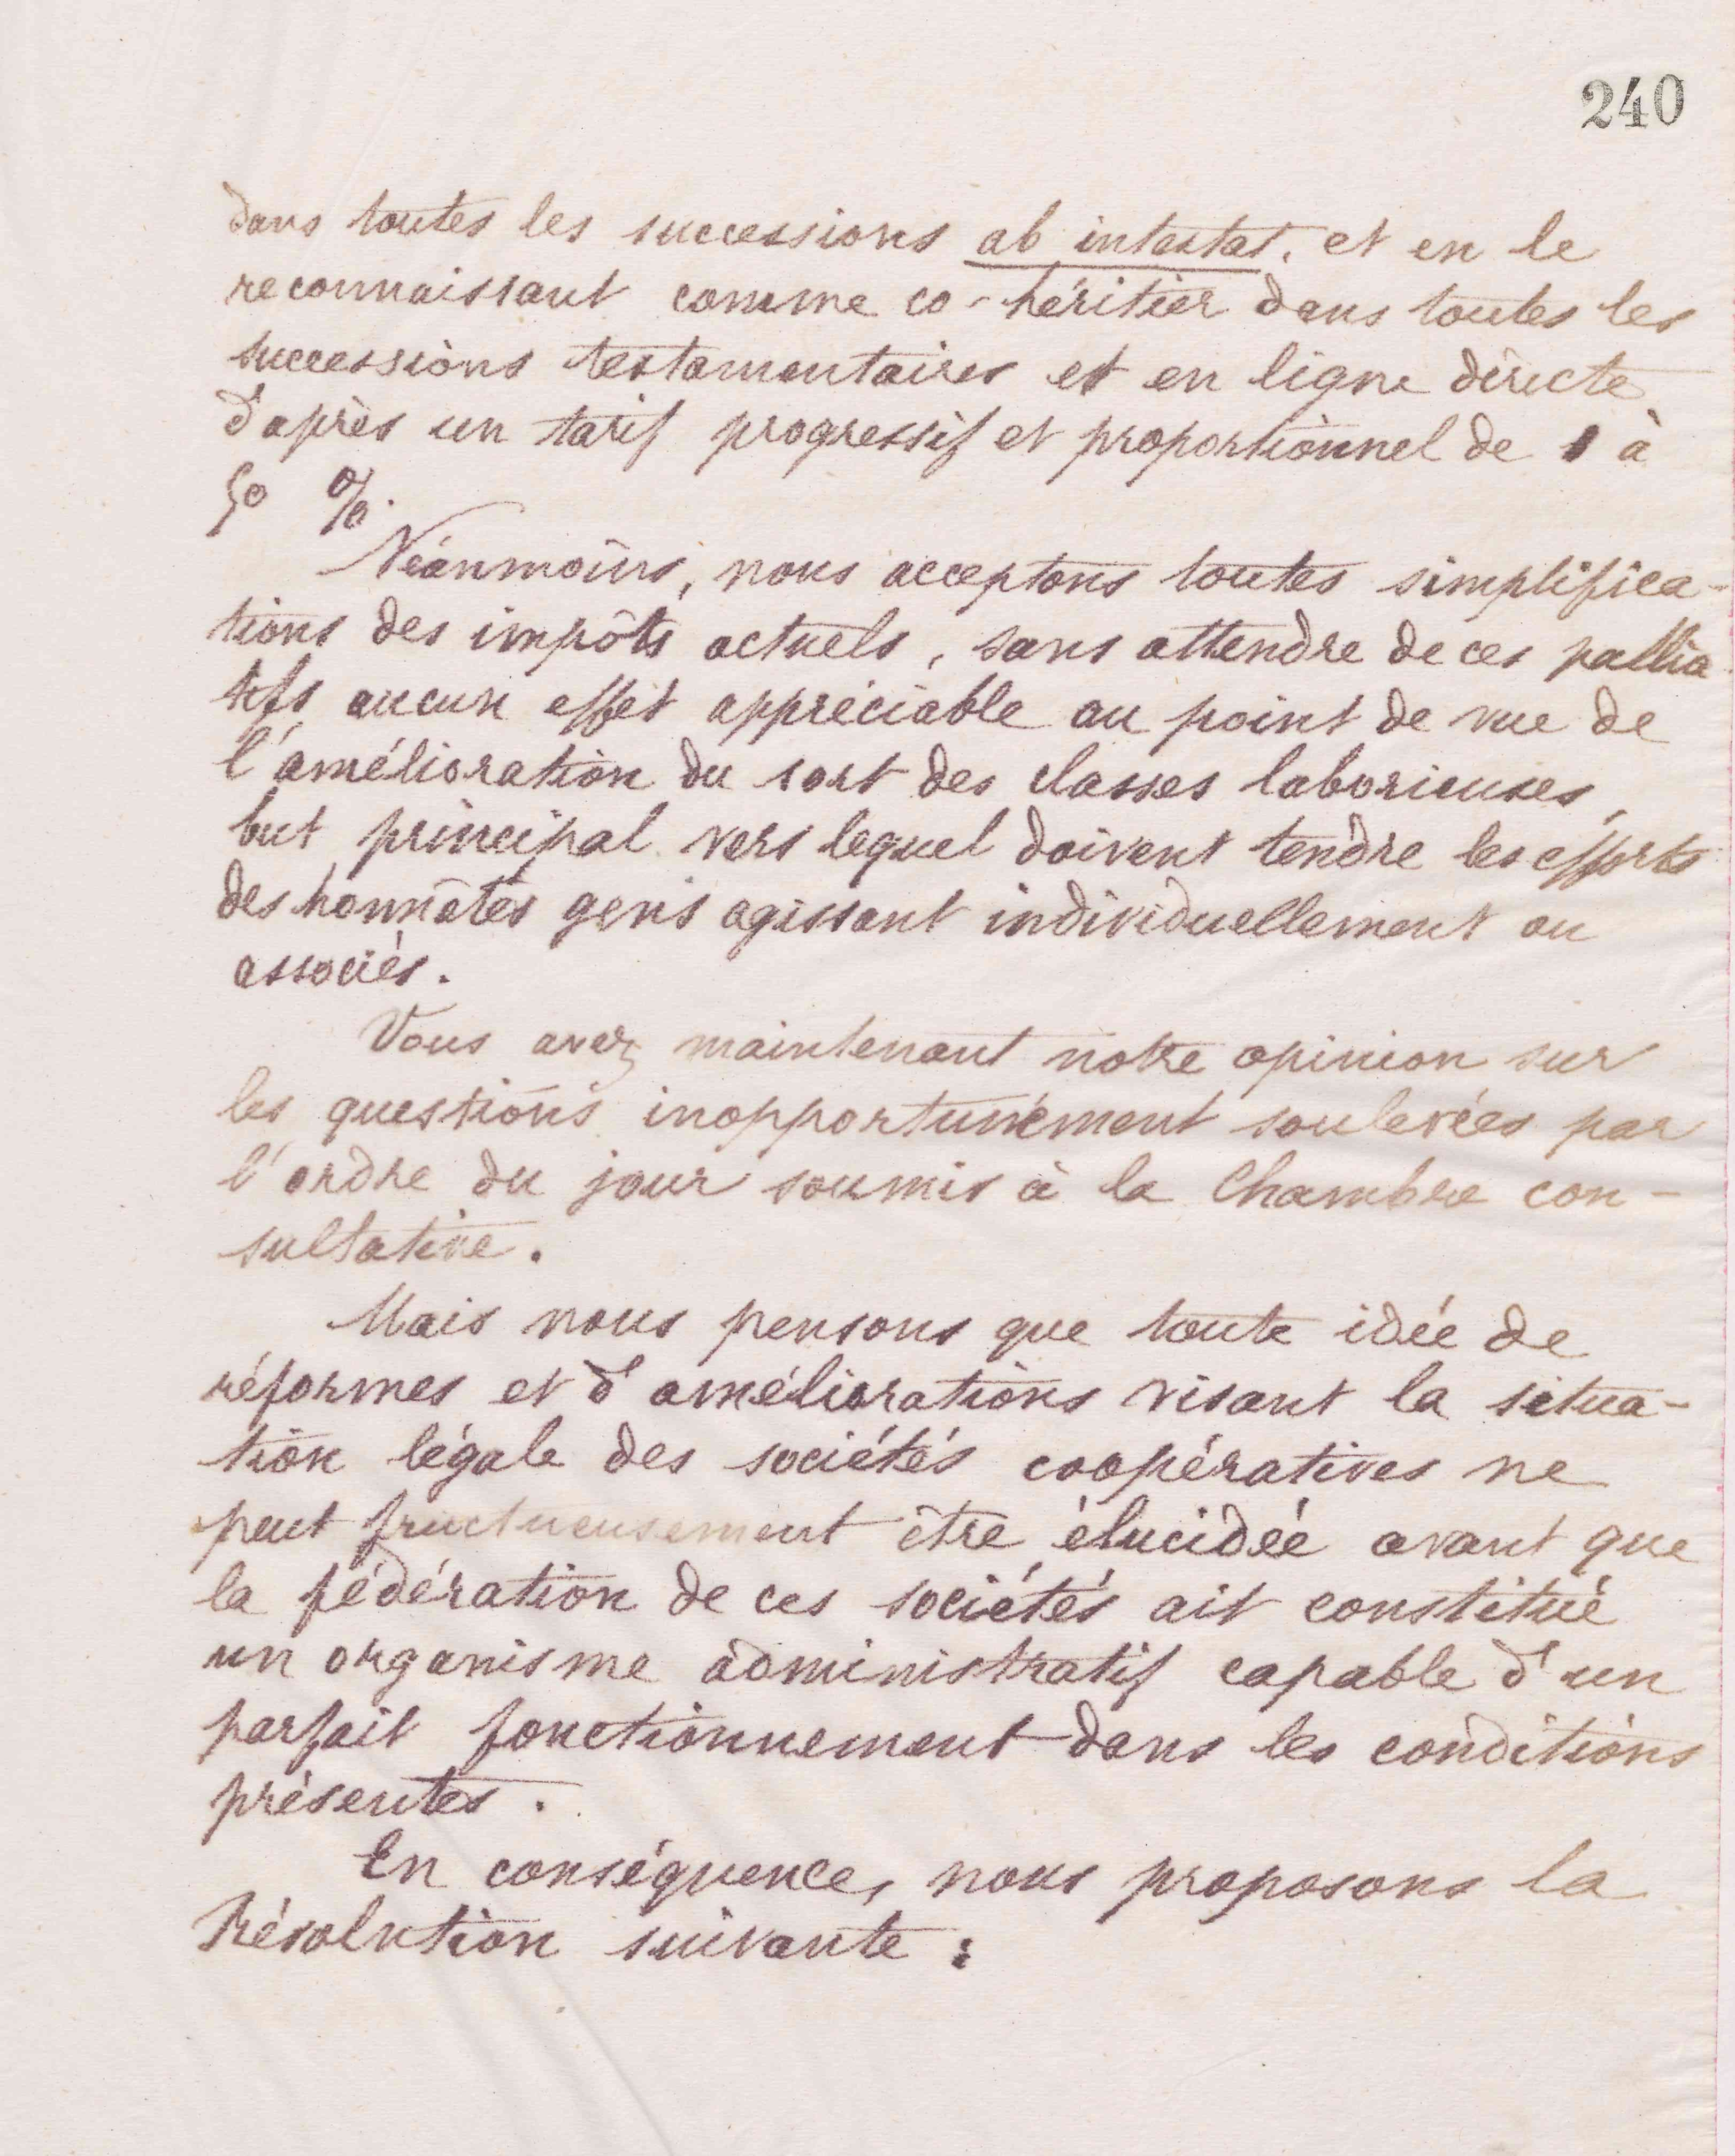 240
dans toutes les successions ab intestat, et en le
reconnaissant comme co-héritier dans toutes les
successions testamentaires et en ligne directe
d'après un tarif progressif et proportionnel de 1 à
50 %.
Néanmoins, nous acceptons toutes simplifica-
tions des impôts actuels, sans attendre de ces pallia
tifs aucun effet appréciable au point de vue de
l'amélioration du sort des classes laborieuses,
but principal vers lequel doivent tendre les efforts
des honnêtes gens agissant individuellement ou
associés.
Vous avez maintenant notre opinion sur
les questions inopportunément soulevées par
l'ordre du jour soumis à la Chambre con-
sultative.
Mais nous pensons que toute idée de
réformes et d'améliorations visant la situa-
tion légale des sociétés coopératives ne
peut fructueusement être élucidée avant que
la fédération de ces sociétés ait constitué
un organisme administratif capable d'un
parfait fonctionnement dans les conditions
présentes.
En conséquence, nous proposons la
Résolution suivante :